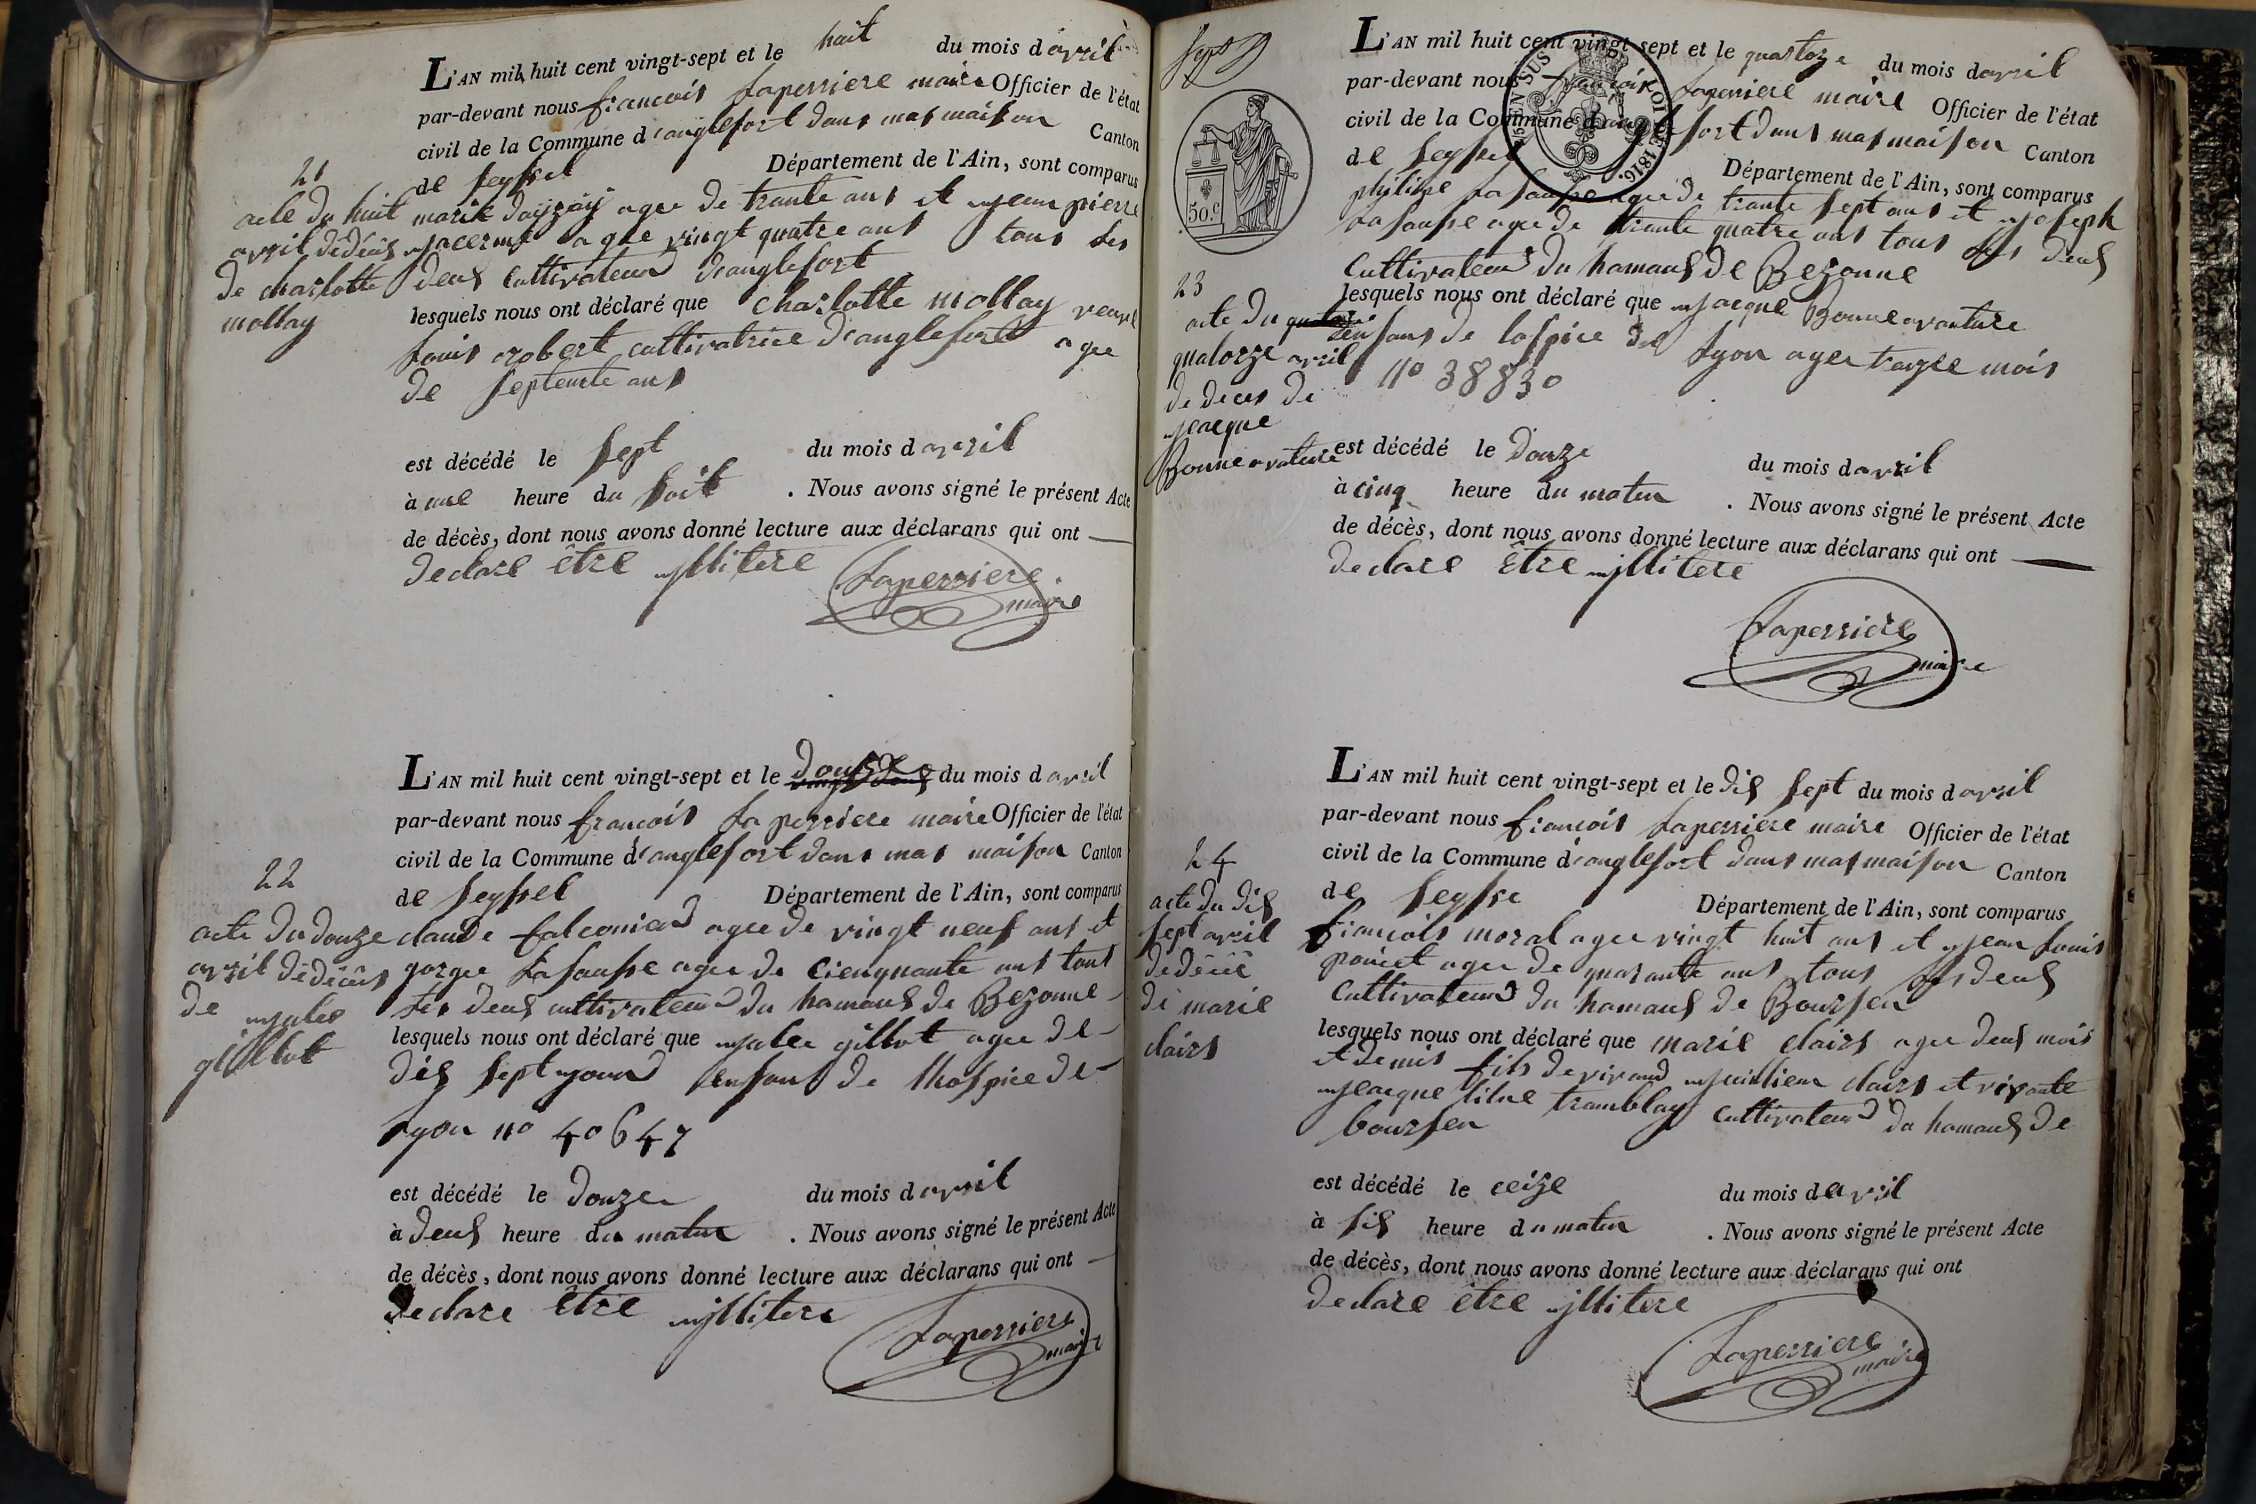 L'AN mil huit cent vingt-sept et le huit du mois d avril
par-devant nous francois Laperriere maire Officier de l'état
civil de la Commune d'anglefort dans mas maison Canton
de Seyssel Département de l'Ain, sont comparus
marie agee de trante ans et jean pierre
agee vingt quatre ans tous les
deux Cultivateur d'anglefort
lesquels nous ont déclaré que charlotte mollay veuve
Louis robert cultivatrice d'anglefort agee
de septente ans
est décédé le sept du mois d avril
à une heure du soit . Nous avons signé le présent Acte
de décès, dont nous avons donné lecture aux déclarans qui ont
declare être jllitere
Laperriere
maire
21
acte du huit
avril dedécés
de charlotte
mollay
L'AN mil huit cent vingt-sept et le douze du mois d avril
par-devant nous francois Laperriere maire Officier de l'état
civil de la Commune d'anglefort dans mas maison Canton
de Seyssel Département de l'Ain, sont comparus
claude falconier agee de vingt neuf ans et
gorgee Lasausse agee de cienquante ans tous
les deux cultivateur du hamaux de Bezonne
lesquels nous ont déclaré que jules gillot agee de
dix sept jour enfans de lhospice de
Lyon no 40647
est décédé le douze du mois d avril
à deux heure du matin . Nous avons signé le présent Acte
de décès, dont nous avons donné lecture aux déclarans qui ont
declare être jllitere
Laperriere
maire
22
acte du douze
avril dedécés
de jules
gillot
sept
L'AN mil huit cent vingt-sept et le quatorze du mois d avril
par-devant nous francois Laperriere maire Officier de l'état
civil de la Commune d'anglefort dans mas maison Canton
de Seyssel Département de l'Ain, sont comparus
philipe Lasausse agee de trante sept ans et joseph
Lasausse agee de trante quatre ans tous les deux
Cultivateur du hamaux de Bezonne
lesquels nous ont déclaré que jacque Bonneavanture
enfans de lospice de Lyon agee trayze mois
no 38830
est décédé le douze du mois d avril
à cinq heure du matin . Nous avons signé le présent Acte
de décès, dont nous avons donné lecture aux déclarans qui ont
declare être jllitere
Laperriere
maire
EN SUS
LOI DE 1816.
50.c
23
acte du
quatorze avril
de deces de
jacque
Bonneavature
L'AN mil huit cent vingt-sept et le dix sept du mois d avril
par-devant nous francois Laperriere maire Officier de l'état
civil de la Commune d'anglefort dans mas maison Canton
de Seysse Département de l'Ain, sont comparus
francois moral agee vingt huit ans et jean Louis
poncet agee de quarante ans tous les deux
Cultivateur du hamaux de Boursen
lesquels nous ont déclaré que marie clairs agee deux mois
et demis fils de vivand jullien clairs et vivante
jeacqueline tramblay cultivateur du hamaux de
boursen
est décédé le ceize du mois d avril
à six heure du matin . Nous avons signé le présent Acte
de décès, dont nous avons donné lecture aux déclarans qui ont
declare être jllitere
Laperriere
maire
24
acte du dix
sept avril
dedécé
de marie
clairs